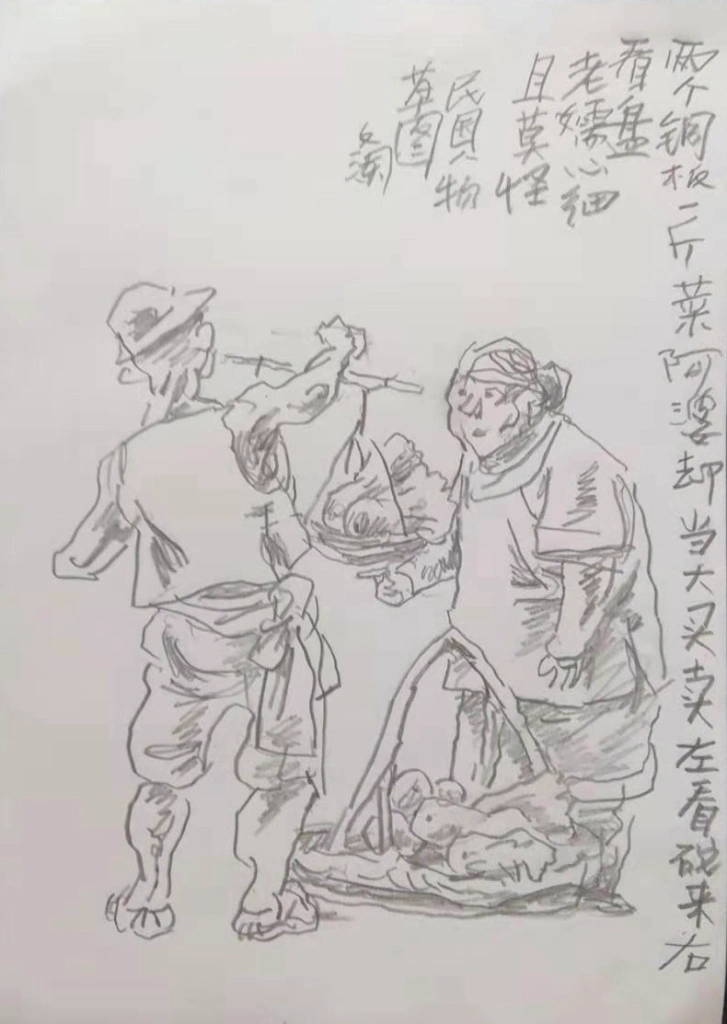 两个铜板二斤菜阿婆却当大买卖左看砣来右
看盘
老嬬心细
且莫怪
民国人物
草图